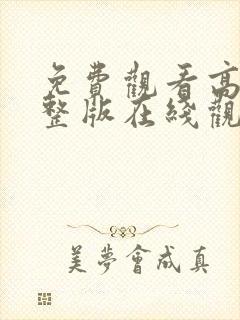 免費觀看高
整版在綫觀
美夢會成真